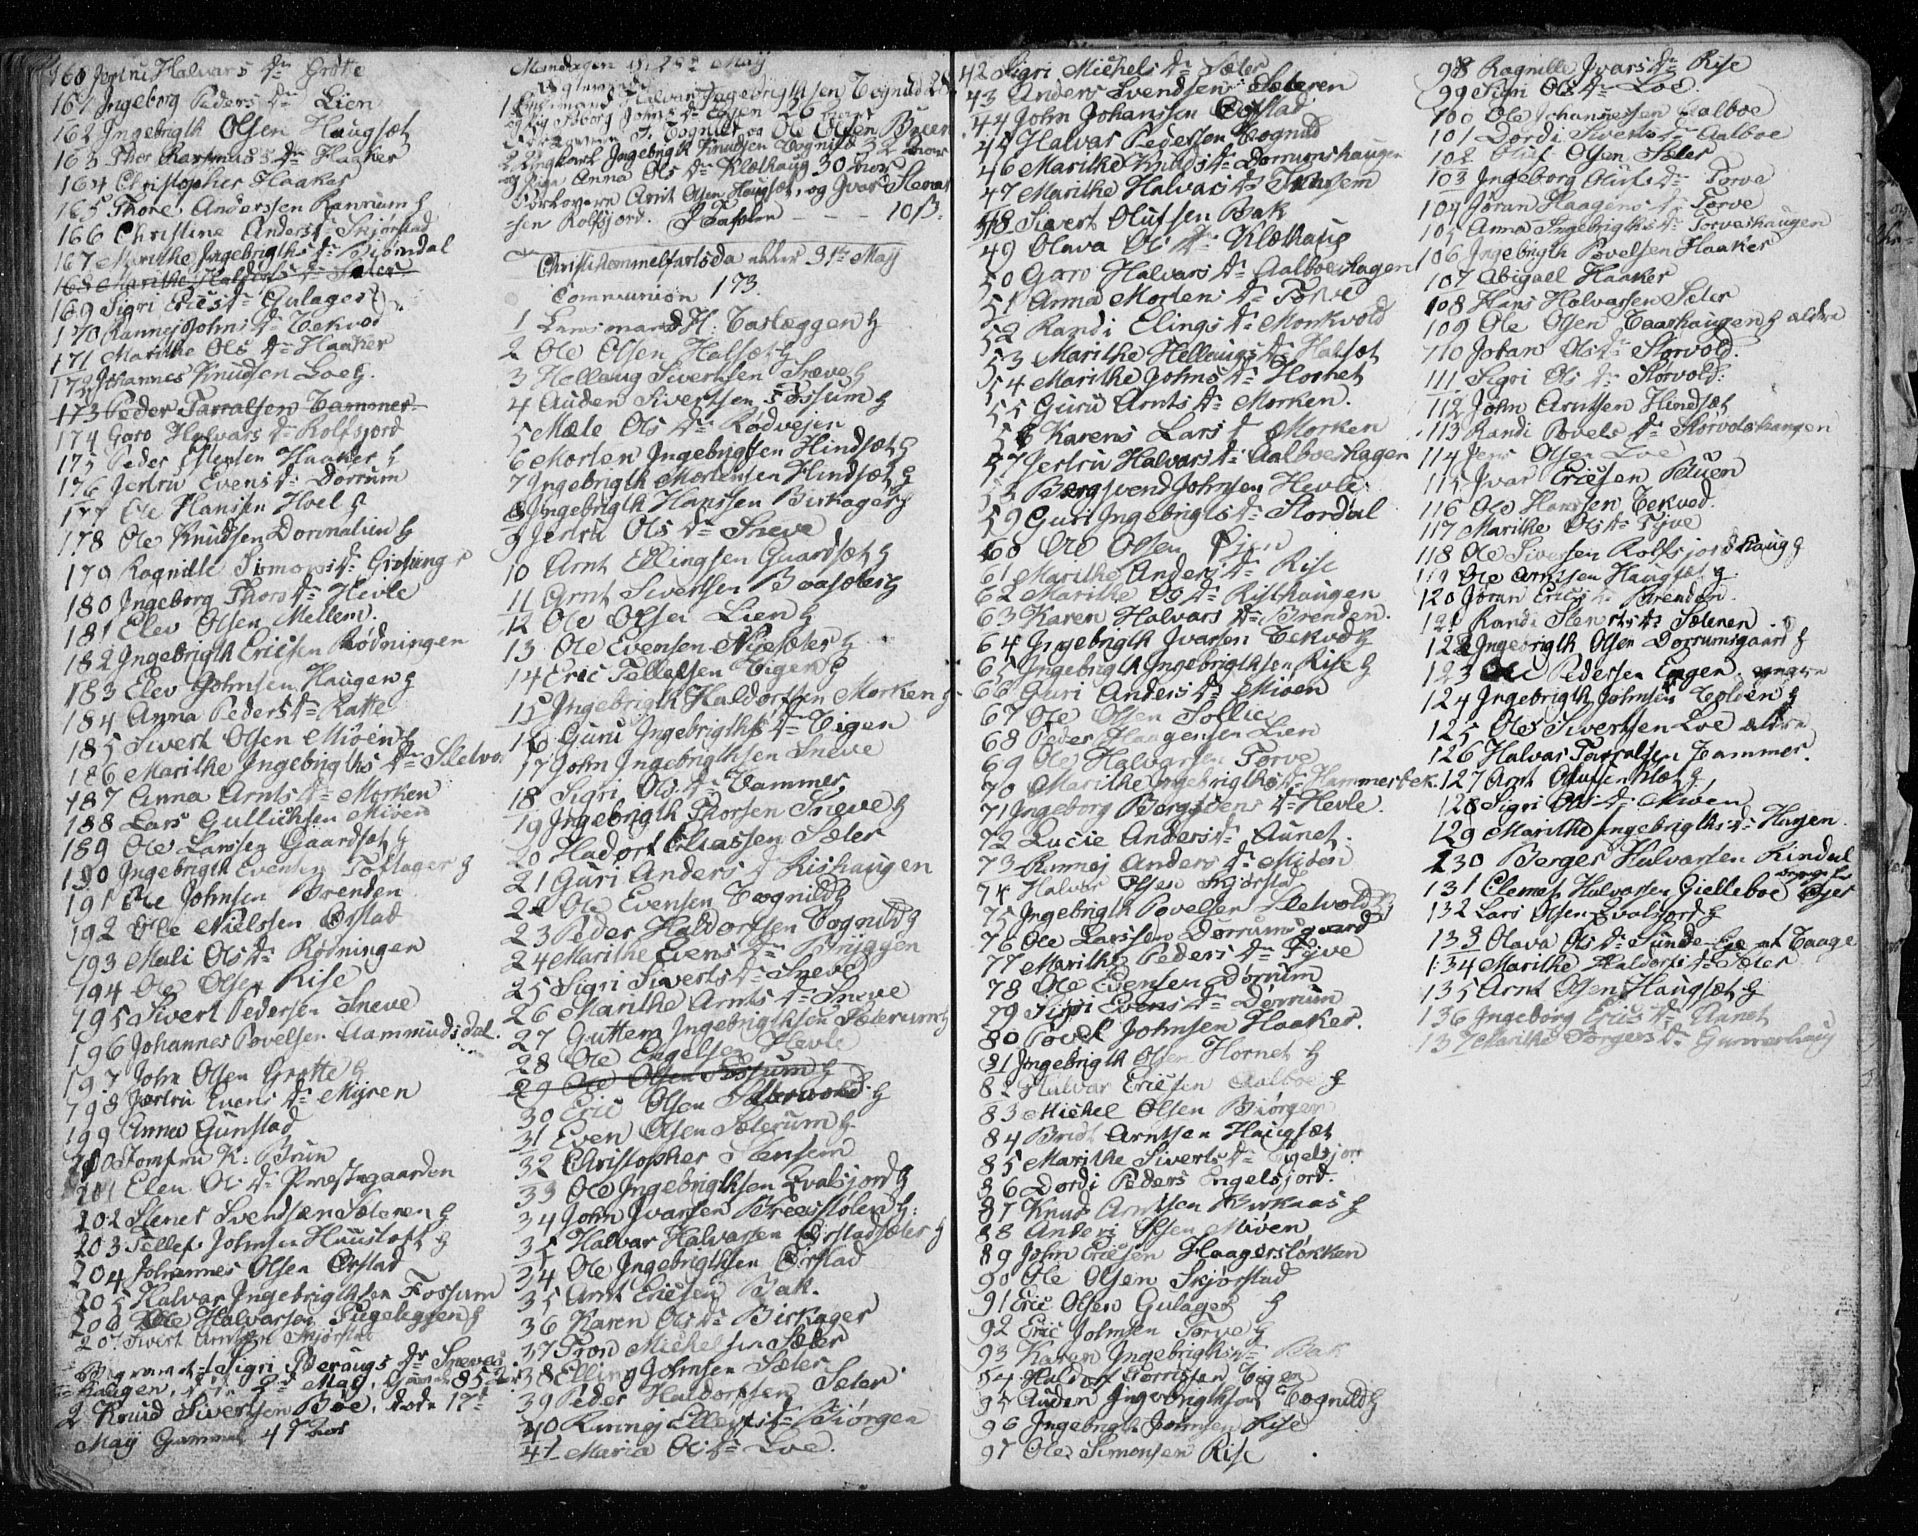 160 Jertru Halvars Dr Grøtte
161 Ingeborg Peders Dr Lien
162 Ingebrigth Olsen Haugsæt
163 Thor Rasmus Dr Haaker
164 Christopher Haaker
165 Thore Anderssen Ramrum
166 Christine Anders Skjørstad
167 Marithe Ingebrigths Dr Biørndal
168 Marithe Haldors Dr Sæter
169 Sigri Erics Dr Gulager
170 Rannej Johns Dr Tekvod
171 Marithe Ols Dr Haaker
172 Johannes Knudsen Loe
173 Peder Tarralsen Tammer
174 Goro Halvars Dr Rolfsjord
175 Peder Haaker
176 Jertru Evens Dr Dorrum
177 Ole Hansen Hoel
178 Ole Knudsen Dørmalien
179 Ragnille Simons Dr
180 Ingeborg Thors Dr Hevle
181 Elev Olsen Mellem.
182 Ingebrigth Ericsen Rødningen
183 Elev Johnsen Haugen
184 Anna Peders Dr Ratte
185 Sivert Olsen Miøen
186 Marithe Ingebrigths Dr Sletvo
187 Anna Arnts Dr Morken
188 Lars Gullichsen Miøen
189 Ole Larssen Gaardsæt
190 Ingebrigth Evensen Toftager
191 Ole Johnsen Brenden
192 Ole Nielssen Ørstad
193 Mali Ols Dr Rødningen
194 Ole Olsen Rise
195 Sivert Pedersen Sneve
196 Johannes Povelsen Aammundsdal.
197 John Olsen Grøtte
198 Jertru Evens Dr Mijren
199 Anna Gunstad
200 Jomfru K: Brun
201 Elen Ols Dr Præstegaarden
202 Stener Svendsen Sæteren
203 Tellef Johnsen Haustoft
204 Johannes Olsen Ørstad
205 Halvar Ingebrigthsen Fossum
206 Ole Halvarsen
207 Sivert Arntsen Skjørstad
Begravet Sigri Beraugs Dr Sneves
haugen, 2d May, gammel 85
2 Knud Sivertsen Bøe, dødr 17d
May Gammel 47 aar
Mandagen d. 28de May
Ægteviet
1 Halvar Ingebrigthsen Tognild 28
og Pig Isborg Johns Dr 26 aar
T. Tognild og Ole Olsen Bueen
2 Ungkarl Ingebrigth Knudsen Tognild 32 aar
og Pige Anna Ols Dr Klæthaug 30 aar
Forlovere Arnt Olsen Haugsæt, og Ivar Stenar
sen Rolfsjord. - - - 10 β.
Christi Himmelfartsda eller 31te May
Communion 173.
1 Lensmand H: Taslæggen
2 Ole Olsen Halsæt
3 Hellaug Sivertsen Sneve
4 Auden Sivertsen Fossum
5 Mæle Ols Dr Rødvejen
6 Morten Ingebrigtsen Hindsæt
7 Ingebrigth Mortensen Hindsæt
8 Ingebrigth Hanssen Birkager
9 Jertru Ols Dr Sneve
10 Arnt Ellingsen Gaardsæt
11 Arnt Sivertsen Baasæter
12 Ole Olsen Lien
13 Ole Evensen Nysæter
14 Eric Tellefsen Tigen
15 Ingebrigth Haldorssen Morken
16 Guru Ingebrigths Dr Tigen
17 John Ingebrigthsen Sneve
18 Sigri Ols Dr Tammer
19 Ingebrigth Thorsen Sneve
20 Hadort Eliassen Sæter
21 Guri Anders D Rishaugen
22 Ole Evensen Tognild
23 Peder Haldorssen Tognild
24 Marithe Evens Dr Brijggen
25 Sigri Siverts Dr Sneve
26 Marithe Arnts Dr Sneve
27 Guttorm Ingebrigthsen Sæterum
28 Ole Engelsen Hevle
29 Ole Olsen Fossum
30 Eric Olsen Sætervold
31 Even Olsen Sæterum
32 Christopher Stensem
33 Ole Ingebrigthsen Evalsjord
34 John Ivarsen Breesstølen
35 Halvar Halvarsen Ørstadsæter
34 Ole Ingebrigthsen Ørstad
35 Arnt Ericsen Bak.
36 Karen Ols Dr Birkager
37 Tron Michelsen Sæter
38 Elling Johnsen Sæter
39 Peder Haldorssen Sæter
40 Runnig Ellefs Dr Biørgen
41 Maria Ols Dr Loe.
42 Sigri Michels Dr Sæter
43 Anders Svendsen Sæteren
44 John Johanssen Ørstad
45 Halvar Pedersen Tognild
46 Marithe Knuds Dr Dorrumshaugen
47 Marithe Halvars Dr Stensem
48 Sivert Olufsen Bak
49 Olava Ols Dr Klæthaug
50 Goro Halvars Dr Aalboeshagen
51 Anna Mortens Dr Torve
52 Randi Elings Dr Morkvold
53 Marithe Hellaugs Dr Halsæt
54 Marithe Johns Dr Hornet
55 Guru Arnts Dr Morken.
56 Karen Lars D Morken
57 Jertru Halvars Dr Aalboeshagen
58 Bergsvend Johnsen Hevle.
59 Guri Ingebrigts Dr Stordal
60 Ole Olsen
61 Marithe Anders Dr Rise
62 Marithe Ols Dr Risthaugen
63 Karen Halvars Dr Brenden.
64 Ingebrigth Ivarsen Tekvod
65 Ingebrigth Ingebrigthsen Rise
66 Guri Anders Dr Miøen
67 Ole Olsen Sollie
68 Peder Haugensen Lien
69 Ole Halvarsen Torve
70 Marithe Ingebrigths Dr Hammerbek.
71 Ingeborg Bergsvens Dr Hevle.
72 Lucie Anders Dr Aunet.
73 Runnej Anders Dr Miøen
74 Halvar Olsen Skjørstad
75 Ingebrigth Povelsen Sletvold
76 Ole Larssen Dorrumsgaard
77 Marithe Peders Dr Tyve
78 Ole Evensen Dorrum
79 Sigri Evens Dr Dorrum
80 Povel Johnsen Haaker.
81 Ingebrigth Olsen Hornet
82 Halvar Ericsen Aalboe
83 Michel Olsen Biørgen
84 Brut Arntsen Haugsæt
85 Marithe Siverts Dr Engelsjor
86 Dordi Peders Engelsjord.
87 Knud Arntsen Birkaas
88 Anders Olsen Miøen
89 John Ericsen Haagersløkken
90 Ole Olsen Skjørstad
91 Eric Olsen Gulager
92 Eric Johnsen Torve
93 Karen Ingebrigths Dr Bak
94 Haldor Torrissen Tigen
95 Auden Ingebrigthsen Tognild
96 Ingebrigth Johnsen Rise
97 Ole Simonsen Rise
98 Ragnille Ivars Dr Rise
99 Sigri Ols Dr Loe.
100 Ole Johannessen Aalboe
101 Dordi Siverts Dr Aalboe
102 Oluf Olsen Sæter
103 Ingeborg Olufs Dr Torve
104 Jøran Haagens Dr Torve
105 Anna Ingebrigths Dr Torveshaugen
106 Ingebrigth Povelsen Haaker
107 Abigael Haaker
108 Hans Halvarsen Sæter
109 Ole Olsen Taashaugen ældre
110 Johan Ols Dr Storvold.
111 Sigri Ols Dr Storvold.
112 John Arntsen Hindsæt
113 Randi Povels Dr Storvoldshaugen
114 Jens Olsen Loe
115 Ivar Ericsen Bueen
116 Ole Hanssen Tekvod.
117 Marithe Ols Dr Tyve
118 Ole Siversen Rolfsjordshaug
119 Ole Arntsen Haugsæt
120 Jøran Erics Dr Brenden.
121 Randi Steners Dr Sæteren.
122 Ingebrigth Olsen Dorrumsgaard
123 Ole Pedersen Engen. yngre
124 Ingebrigth Johnsen Tolden
125 Ole Sivertsen Loe ældre
126 Halvar Torralsen Tammer.
127 Arnt Olufsen Klæt
128 Sigri Ols Dr Miøen
129 Marithe Ingebrigths Dr Hagen.
130 Berger Halvarsen Rindal
131 Clemet Halvarsen Gielleboe
132 Lars Olsen Evalsjord
133 Olava Ols Dr Sunde
134 Marithe Haldors Dr Sæter
135 Arnt Olsen Haugsæt
136 Ingeborg Erics Dr Aunet
137 Marithe Torgers Dr Gunnerhaug